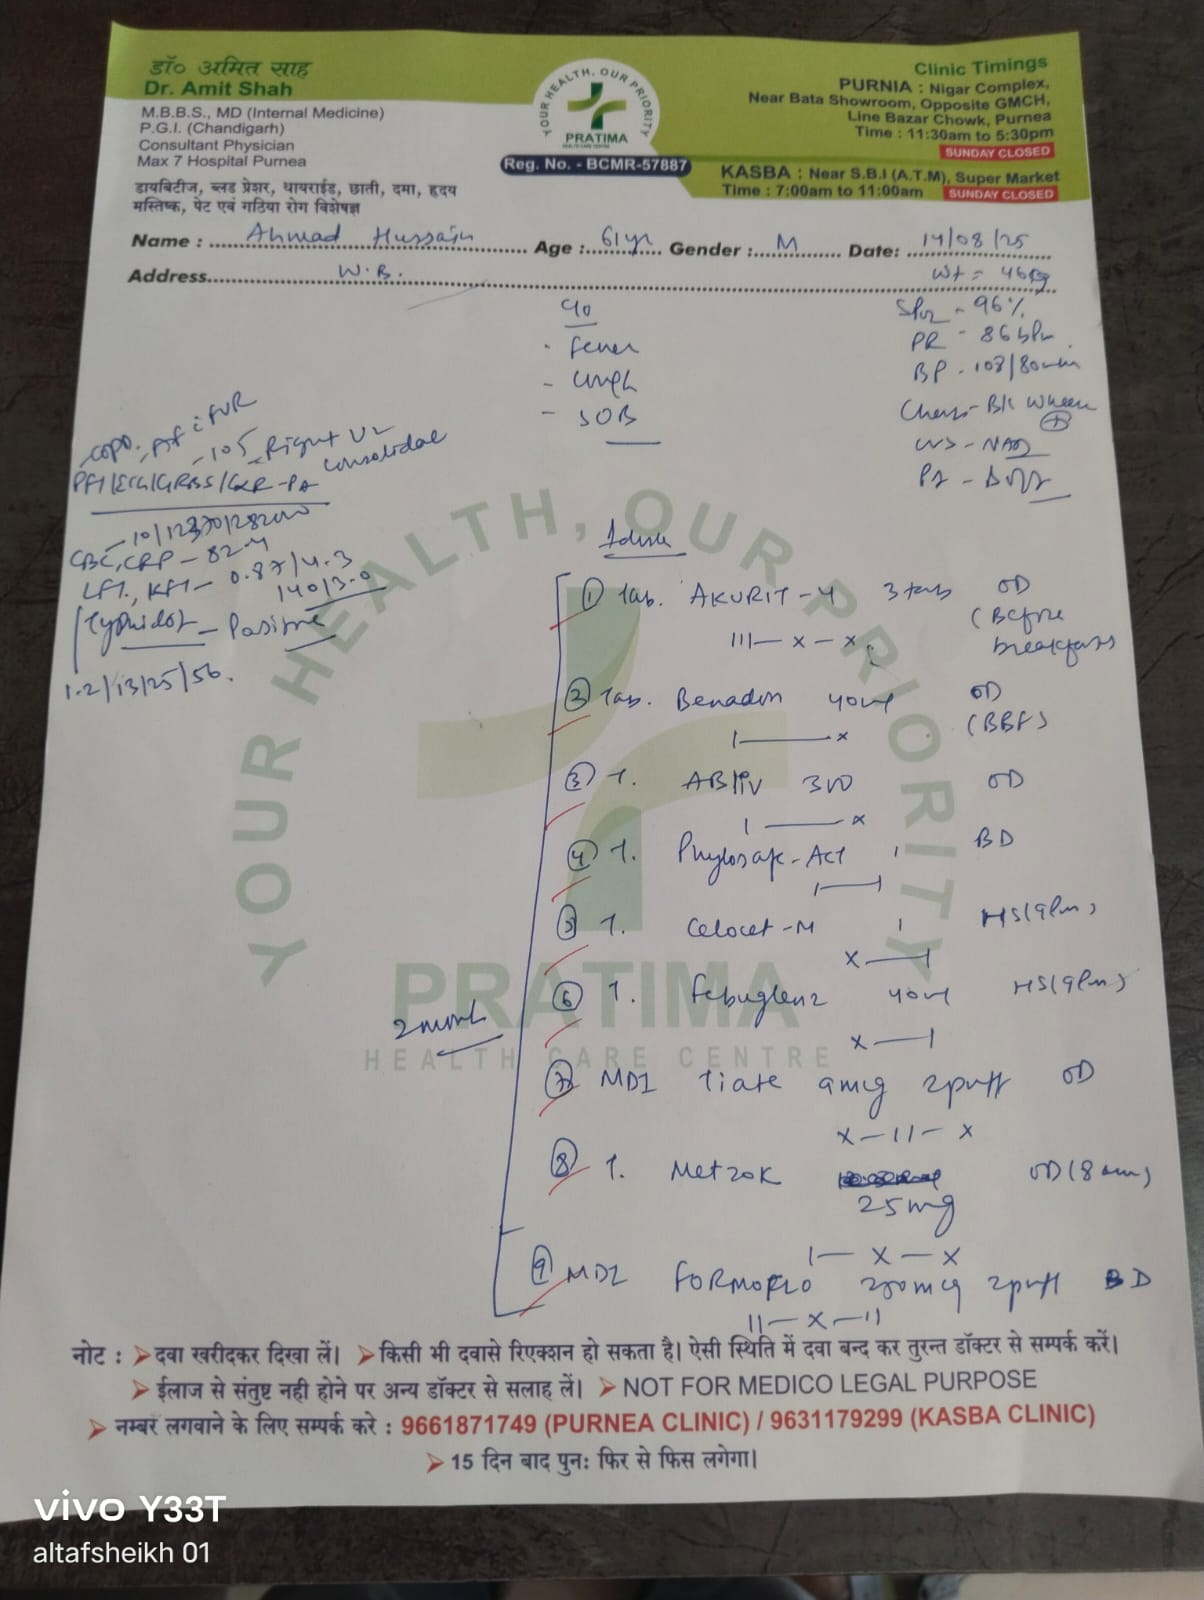 डॉ० अमित साह
Dr. Amit Shah
M.B.B.S., MD (Internal Medicine)
P.G.I. (Chandigarh)
Consultant Physician
Max 7 Hospital Purnea
डायबिटीज, ब्लड प्रेशर, थायराईड, छाती, दमा, हृदय
मस्तिष्क, पेट एवं गठिया रोग विशेषज्ञ
YOUR HEALTH, OUR PRIORITY
PRATIMA
HEALTH CARE CENTRE
Reg. No. - BCMR-57887
Clinic Timings
PURNIA : Nigar Complex,
Near Bata Showroom, Opposite GMCH,
Line Bazar Chowk, Purnea
Time : 11:30am to 5:30pm
SUNDAY CLOSED
KASBA : Near S.B.I (A.T.M), Super Market
Time : 7:00am to 11:00am SUNDAY CLOSED
Name : Ahmad Hussain Age : 61yr Gender : M Date: 14/08/25
Address W.B. Wt = 46kg
c/o
- fever
- cough
- SOB
SPO2 - 96%
PR - 86 bpm
BP - 108/80
Chest - B/L wheeze
+
- NAD
PA -
COPD, AF c FVR
- 105, Right UL
PFT/ECG/GRBS/CXR-PA
CBC, CRP - 82
LFT, KFT - 0.87/4.3
140/3.0
Typhidot - Positive
1.2/13/25/56.
Advice
① Tab. AKURIT-4 3 tabs OD
(Before breakfast)
III - x - x
② Tab. Benadon 40mg OD
(BBF)
I — x
③ T. ABliv 300 OD
I — x
④ T. Phylosafe-Act 1 BD
I — I
⑤ T. Celocet-M 1 HS (9pm)
x — I
⑥ T. Febuglenz 40mg HS (9pm)
x — I
2 month
⑦ MDI Tiate 9mcg 2puff OD
x - II - x
⑧ T. Metzok OD (8am)
25mg
I — x — x
⑨ MDI FORMOFLO 250mcg 2puff BD
II - x - II
YOUR HEALTH, OUR PRIORITY
PRATIMA
HEALTH CARE CENTRE
नोट : ➤दवा खरीदकर दिखा लें। ➤किसी भी दवासे रिएक्शन हो सकता है। ऐसी स्थिति में दवा बन्द कर तुरन्त डॉक्टर से सम्पर्क करें।
➤ईलाज से संतुष्ट नही होने पर अन्य डॉक्टर से सलाह लें। ➤NOT FOR MEDICO LEGAL PURPOSE
➤नम्बर लगवाने के लिए सम्पर्क करे : 9661871749 (PURNEA CLINIC) / 9631179299 (KASBA CLINIC)
➤15 दिन बाद पुनः फिर से फिस लगेगा।
vivo Y33T
altafsheikh 01